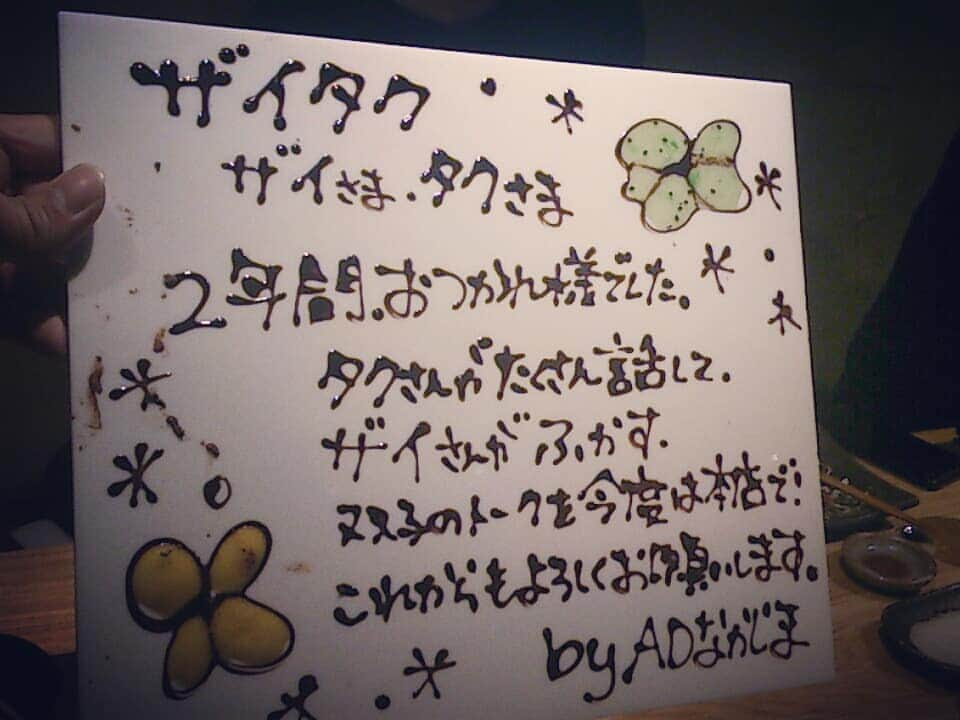 ザイタク
ザイさま・タクさま
2年間。おつかれ様でした。
タクさんがたくさん話して、
ザイさんがふかす。
のトークを今度は本店で!
これからもよろしくお願いします。
by ADなかじま